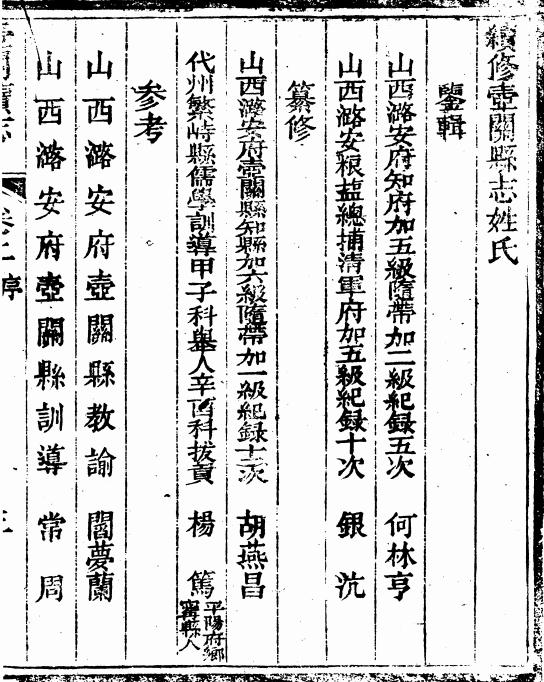 續修壺關縣志姓氏
鑒輯
山西潞安府知府加五級隨帶加二級紀錄五次 何林亨
山西潞安粮盐總捕清軍府加五級紀錄十次 銀沆
纂修
山西潞安府壺關縣知縣加六級隨帶加一級紀錄十二次 胡燕昌
代州繁峙縣儒學訓導甲子科舉人辛酉科拔貢 楊篤 平陽府鄉寧縣人
參考
山西潞安府壺關縣教諭 閻夢蘭
山西潞安府壺關縣訓導 常周